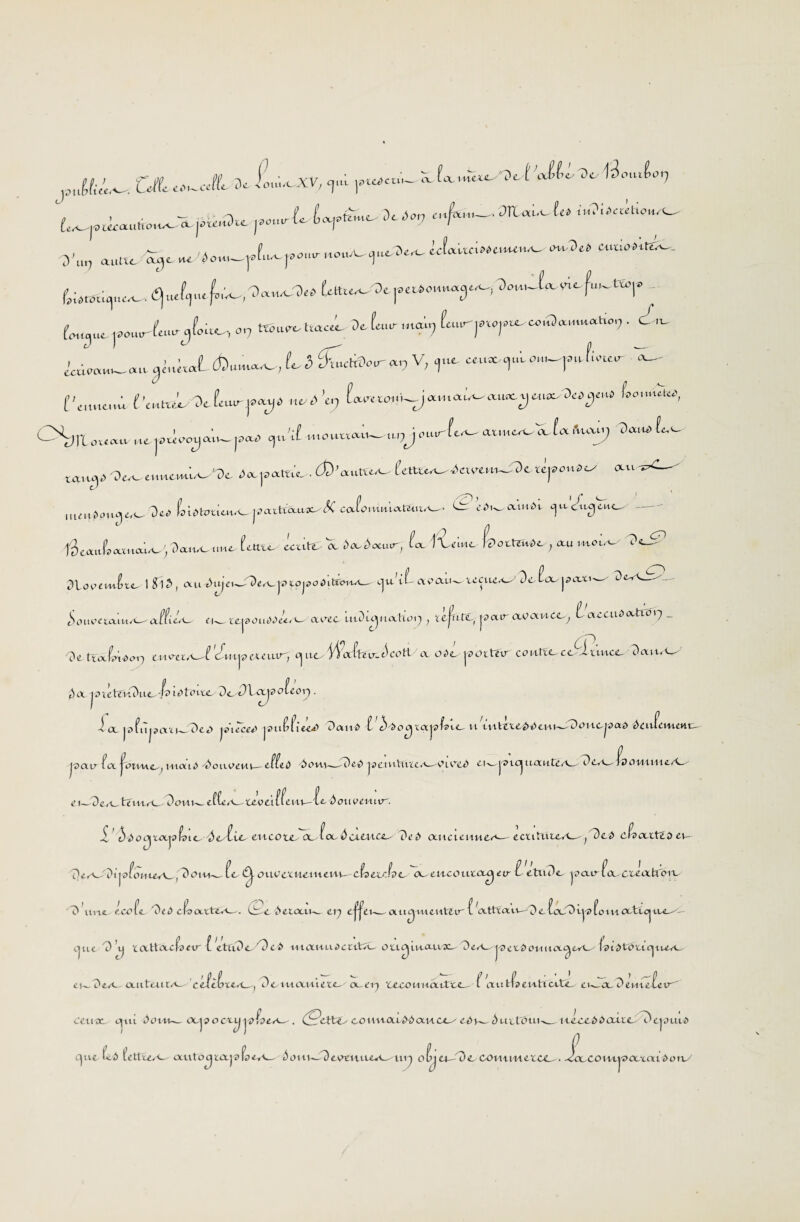 publiées. Telle est celle de Louis XV, qui prescrit à la mère de l'abbé de Bourbon
les précautions à prendre pour le baptême de son enfant. Mais les indiscrétions
d'un autre âge ne sont plus pour nous que des éclaircissemens ou des curiosités
historiques. Quelquefois, dans des lettres de personnages, dont la vie fut trop
longue pour leur gloire, on trouve tracée de leur main leur propre condamnation. En
écrivant au général Dumas, le 3 fructidor an V, que ceux qui ont pu livrer à
l'ennemi l'entrée de leur pays ne s'en laveront jamais aux yeux des gens honnêtes,
Moreau ne prévoyait pas qu'il mourrait un jour les armes à la main dans les
rangs des ennemis de sa patrie. D'autres lettres servent de réponse au
mensonges des historiens partiaux & calomniateurs. C'est ainsi qu'Eugène
Beauharnais, dans une lettre écrite à sa sœur, la Reine Hortense, au mois de
Novembre 1813, au sujet des propositions qu'il avait reçues de la part des
Souverains alliés et repoussées avec indignation, réfute, par avance, l'accusation
de trahison envers l'Empereur, que Walter-Scott a osé porter contre ce Prince dans
sa prétendue histoire de Napoléon.
La plupart des pièces publiées dans l'Isographie n'intéressent donc pas seulement
par la forme, mais souvent elles sont des peintures vives et piquantes des hommes
et des tems dont elles réveillent le souvenir.
L'Isographie se lie encore à la science des anciennes écritures, des chartes et
des diplômes, dont le Gouvernement cherche à encourager l'étude par la création
d'une école des chartes. Ce serait en effet augmenter l'attrait de la diplomatique
que d'y rattacher l'étude des manuscrits originaux des personnages historiques
et des auteurs célèbres, de manière à en reconnaître l'authenticité et à démêler
ceux qui sont apocryphes. Cette connaissance est surtout nécessaire depuis
que les lettres autographes sont devenues un objet de commerce. La comparaison